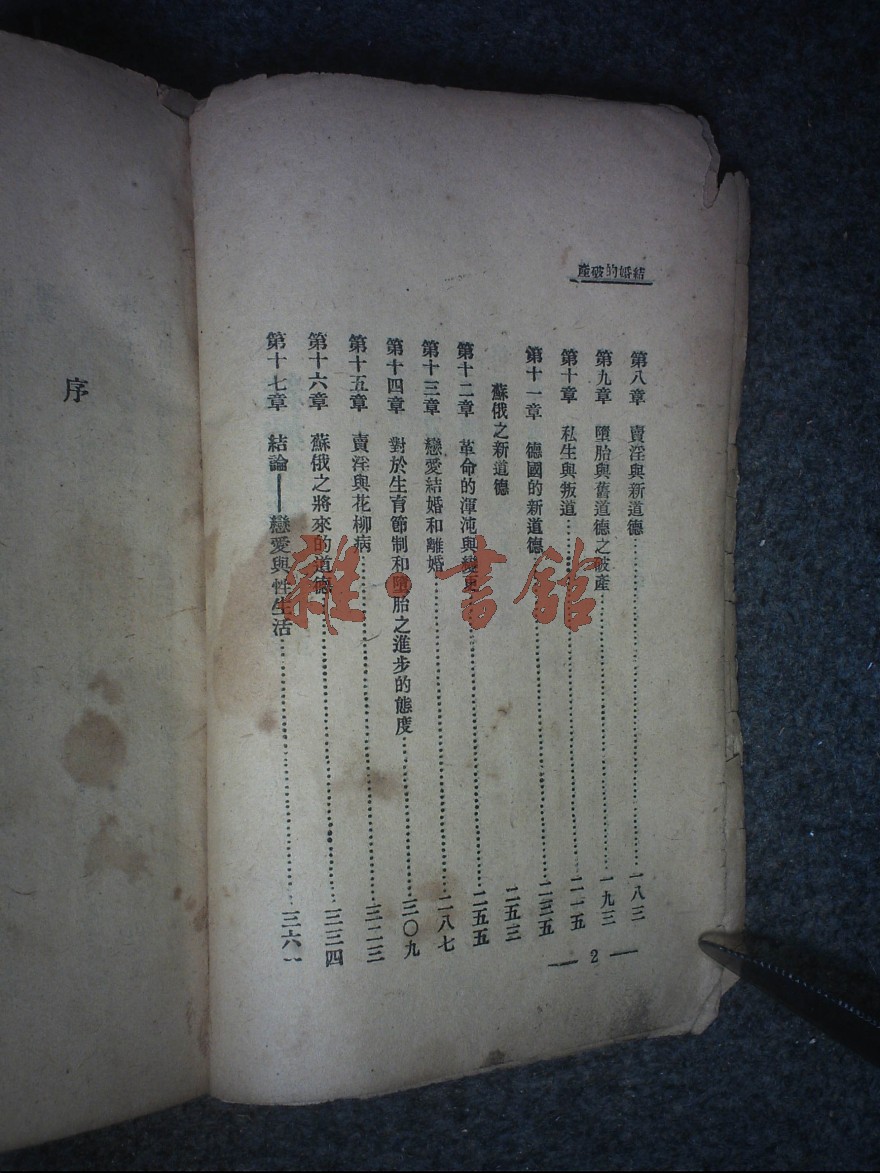 結婚的破產
第八章 賣淫與新道德……一八三
第九章 墮胎與舊道德之破產……一九三
第十章 私生與叛道……二一五
第十一章 德國的新道德……二三五
蘇俄之新道德 二五三
第十二章 革命的渾沌與變更……二五五
第十三章 戀愛結婚和離婚……二八七
第十四章 對於生育節制和墮胎之進步的態度……三〇九
第十五章 賣淫與花柳病……三二三
第十六章 蘇俄之將來的道德……三三四
第十七章 結論——戀愛與性生活……三六
— 2 —
序
雜·書館